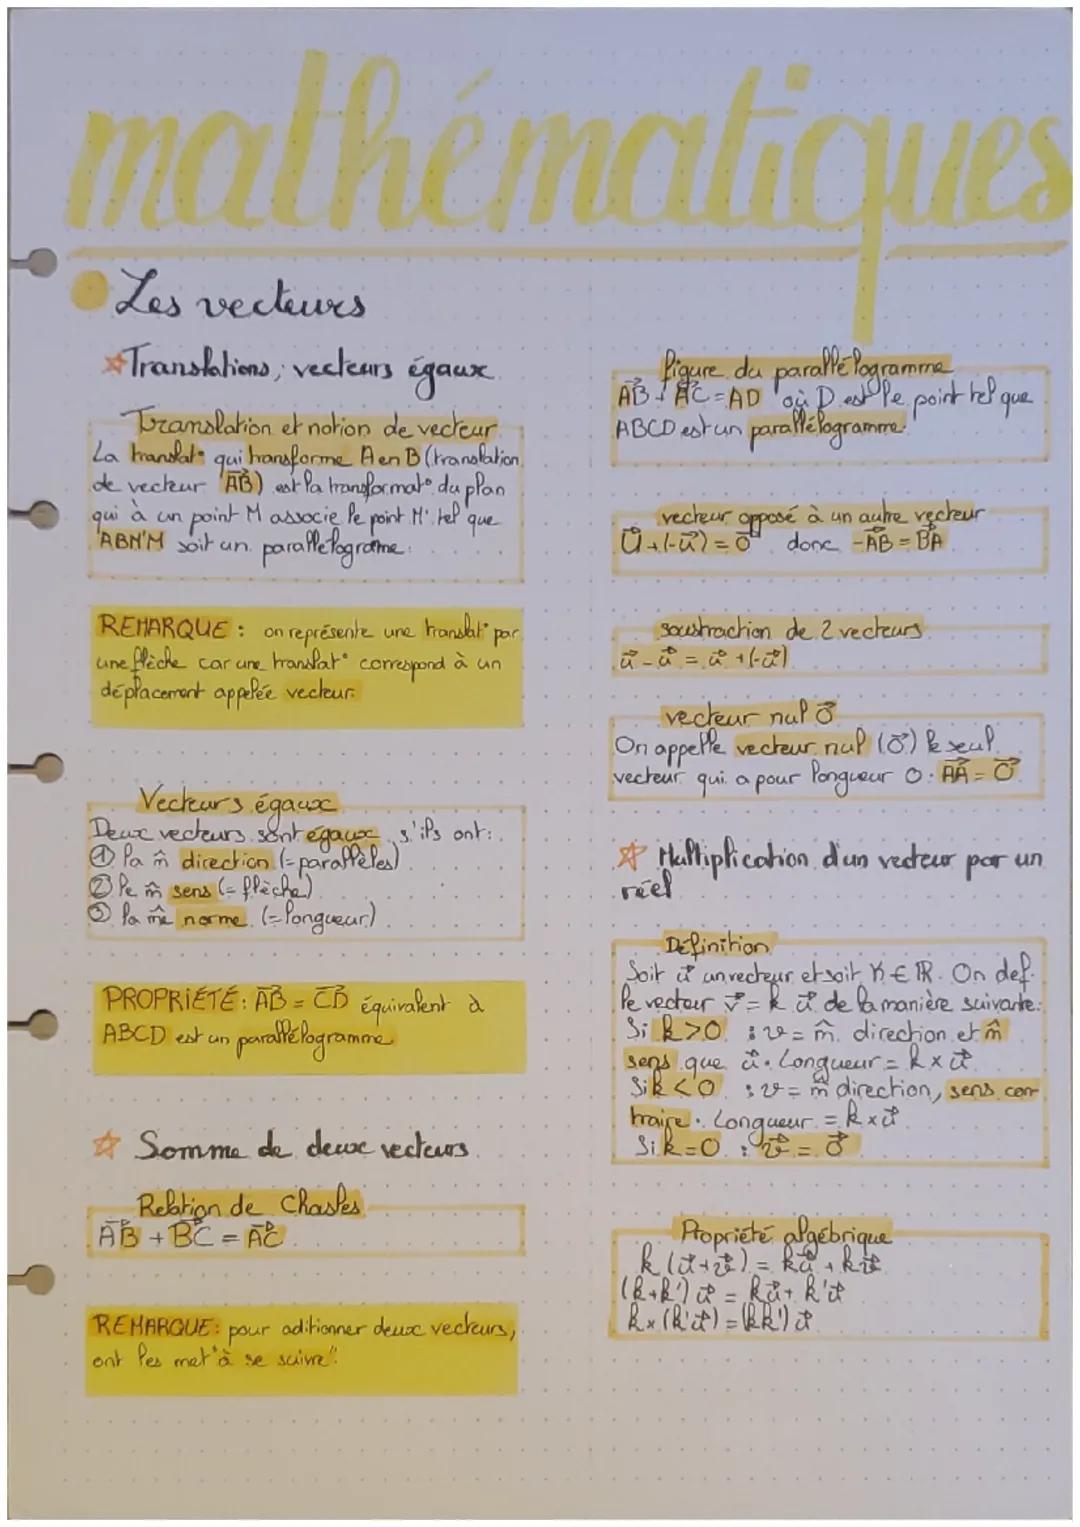 mathématiques
Les vecteurs
Translations, vecteurs égaux
Translation et notion de vecteur
La translat° qui transforme A en B (translation
de vecteur AB⃗) est la transformat° du plan
qui à un point M associe le point M' tel que
ABM'M soit un parallélogramme.
REMARQUE : on représente une translat° par
une flèche car une translat° correspond à un
déplacement appelée vecteur.
Vecteurs égaux
Deux vecteurs sont égaux s'ils ont :
① la m̂ direction (= parallèles)
② le m̂ sens (= flèche)
③ la m̂e norme (= longueur)
PROPRIÉTÉ : AB⃗ = CD⃗ équivalent à
ABCD est un parallélogramme
Somme de deux vecteurs
Relation de Chasles
AB⃗ + BC⃗ = AC⃗
REMARQUE : pour aditionner deux vecteurs,
ont les met "à se suivre".
figure du parallélogramme
AB⃗ + AC⃗ = AD où D est le point tel que
ABCD est un parallélogramme.
vecteur opposé à un autre vecteur
U⃗ + (-u⃗) = 0⃗ donc -AB⃗ = BA⃗
soustraction de 2 vecteurs
u⃗ - u⃗ = u⃗ + (-u⃗)
vecteur nul 0⃗
On appelle vecteur nul (0⃗) le seul
vecteur qui a pour longueur 0. AA⃗ = 0⃗
Multiplication d'un vecteur par un
réel
Définition
Soit u⃗ un vecteur et soit K ∈ ℝ. On def.
le vecteur v⃗ = k u⃗ de la manière suivante :
Si k > 0 : v = m̂ direction et m̂
sens que u⃗. Longueur = k × u⃗
Si k < 0 : v = m̂ direction, sens con-
traire. Longueur = k × u⃗
Si k = 0 : v⃗ = 0⃗
Propriété algébrique
k (u⃗ + v⃗) = ku⃗ + kv⃗
(k + k') u⃗ = ku⃗ + k'u⃗
k × (k'u⃗) = (kk') u⃗